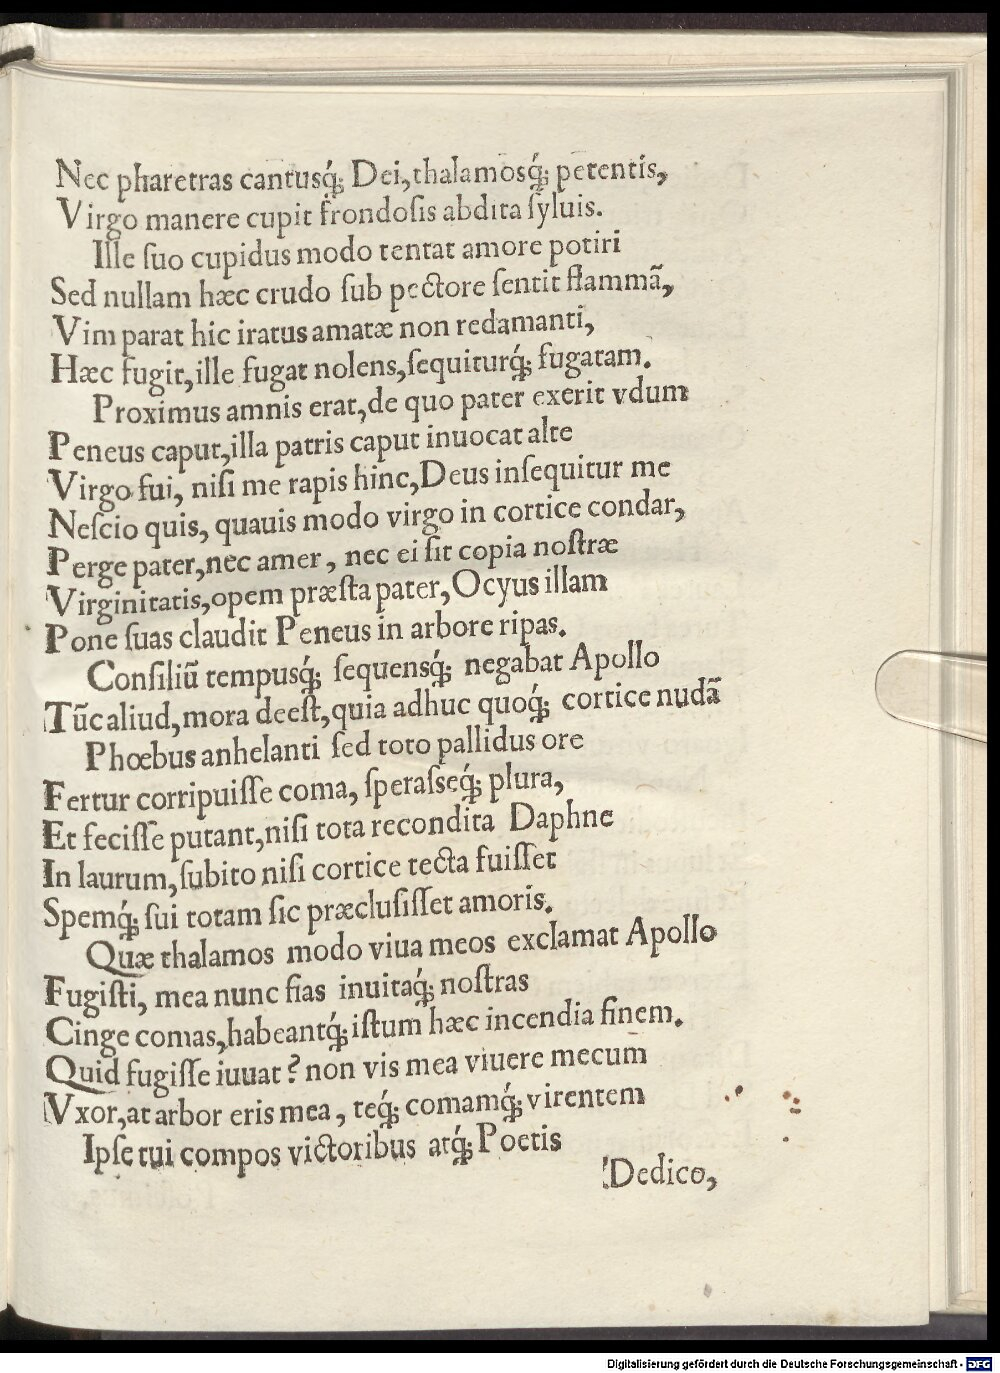 Nec pharetras cantusq́; Dei, thalamosq́; petentis,
Virgo manere cupit frondoſis abdita ſyluis.
Ille ſuo cupidus modo tentat amore potiri
Sed nullam hæc crudo ſub pectore ſentit flammã,
Vim parat hic iratus amatæ non redamanti,
Hæc fugit, ille fugat nolens, ſequiturq́; fugatam.
Proximus amnis erat, de quo pater exerit vdum
Peneus caput, illa patris caput inuocat alte
Virgo fui, niſi me rapis hinc, Deus inſequitur me
Neſcio quis, quauis modo virgo in cortice condar,
Perge pater, nec amer, nec ei ſit copia noſtræ
Virginitatis, opem præſta pater, Ocyus illam
Pone ſuas claudit Peneus in arbore ripas.
Conſiliũ tempusq́; ſequensq́; negabat Apollo
Tũc aliud, mora deeſt, quia adhuc quoq́; cortice nudã
Phœbus anhelanti ſed toto pallidus ore
Fertur corripuiſſe coma, ſperaſseq́; plura,
Et feciſſe putant, niſi tota recondita Daphne
In laurum, ſubito niſi cortice tecta fuiſſet
Spemq́; ſui totam ſic præcluſiſſet amoris.
Quæ thalamos modo viua meos exclamat Apollo
Fugiſti, mea nunc fias inuitaq́; noſtras
Cinge comas, habeantq́; iſtum hæc incendia finem.
Quid fugiſſe iuuat? non vis mea viuere mecum
Vxor, at arbor eris mea, teq́; comamq́; virentem
Ipſe tui compos victoribus atq́; Poetis
Dedico,
Digitalisierung gefördert durch die Deutsche Forschungsgemeinschaft - DFG